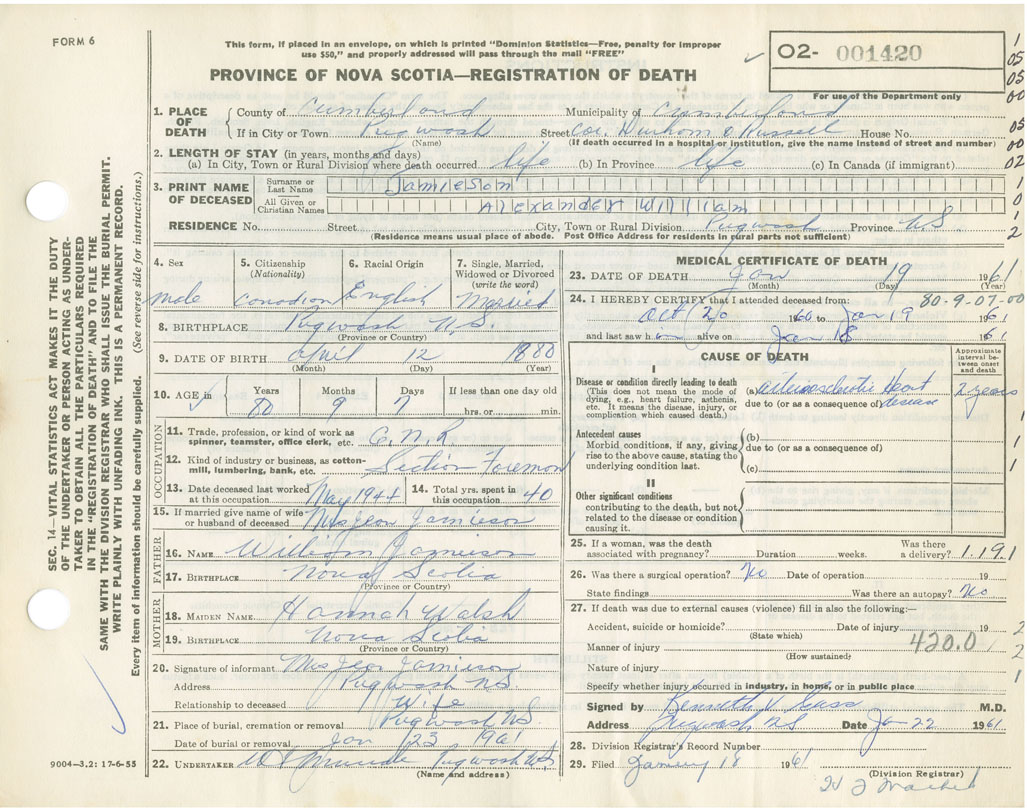 FORM 6
This form, if placed in an envelope, on which is printed "Dominion Statistics—Free, penalty for improper
use $50," and properly addressed will pass through the mail "FREE"
PROVINCE OF NOVA SCOTIA—REGISTRATION OF DEATH
O2- 001420
For use of the Department only
1. PLACE OF DEATH
County of Cumberland Municipality of Cumberland
If in City or Town Pugwash Street Cor. Durham & Russell House No.
(Name) (If death occurred in a hospital or institution, give the name instead of street and number)
2. LENGTH OF STAY (in years, months and days)
(a) In City, Town or Rural Division where death occurred life (b) In Province life (c) In Canada (if immigrant)
3. PRINT NAME OF DECEASED
Surname or Last Name Jamieson
All Given or Christian Names Alexander William
RESIDENCE No. Street City, Town or Rural Division Pugwash Province N.S.
(Residence means usual place of abode. Post Office Address for residents in rural parts not sufficient)
4. Sex male
5. Citizenship (Nationality) Canadian
6. Racial Origin English
7. Single, Married, Widowed or Divorced (write the word) Married
8. BIRTHPLACE Pugwash N.S.
(Province or Country)
9. DATE OF BIRTH April 12 1880
(Month) (Day) (Year)
10. AGE in Years 80 Months 9 Days 7 If less than one day old hrs. or min.
OCCUPATION
11. Trade, profession, or kind of work as spinner, teamster, office clerk, etc. C.N.R
12. Kind of industry or business, as cotton-mill, lumbering, bank, etc. Section Foreman
13. Date deceased last worked at this occupation May 1944 14. Total yrs. spent in this occupation 40
15. If married give name of wife or husband of deceased Mrs Jean Jamieson
FATHER
16. NAME William Jamieson
17. BIRTHPLACE Nova Scotia
(Province or Country)
MOTHER
18. MAIDEN NAME Hannah Walsh
19. BIRTHPLACE Nova Scotia
(Province or Country)
20. Signature of informant Mrs Jean Jamieson
Address Pugwash NS
Relationship to deceased Wife
21. Place of burial, cremation or removal Pugwash NS.
Date of burial or removal Jan 23, 1961
22. UNDERTAKER Pugwash NS
(Name and address)
MEDICAL CERTIFICATE OF DEATH
23. DATE OF DEATH Jan 19 1961
(Month) (Day) (Year)
24. I HEREBY CERTIFY that I attended deceased from: 80-9-07-00
Oct 20 1960 to Jan 19 1961
and last saw him alive on Jan 18 1961
CAUSE OF DEATH
Approximate interval between onset and death
I
Disease or condition directly leading to death
(This does not mean the mode of dying, e.g., heart failure, asthenia, etc. It means the disease, injury, or complication which caused death.)
(a) arteriosclerotic Heart disease 2 years
due to (or as a consequence of)
Antecedent causes
Morbid conditions, if any, giving rise to the above cause, stating the underlying condition last.
(b)
due to (or as a consequence of)
(c)
II
Other significant conditions contributing to the death, but not related to the disease or condition causing it.
25. If a woman, was the death associated with pregnancy? Duration weeks. Was there a delivery? 1.19.1
26. Was there a surgical operation? No Date of operation 19
State findings Was there an autopsy? No
27. If death was due to external causes (violence) fill in also the following:—
Accident, suicide or homicide? Date of injury 19
(State which)
Manner of injury 420.0
(How sustained)
Nature of injury
Specify whether injury occurred in industry, in home, or in public place
Signed by Kenneth V. M.D.
Address Pugwash NS Date Jan 22 1961
28. Division Registrar's Record Number
29. Filed January 18 1961
(Division Registrar)
SEC. 14—VITAL STATISTICS ACT MAKES IT THE DUTY
OF THE UNDERTAKER OR PERSON ACTING AS UNDER-
TAKER TO OBTAIN ALL THE PARTICULARS REQUIRED
IN THE "REGISTRATION OF DEATH" AND TO FILE THE
SAME WITH THE DIVISION REGISTRAR WHO SHALL ISSUE THE BURIAL PERMIT.
WRITE PLAINLY WITH UNFADING INK. THIS IS A PERMANENT RECORD.
Every item of information should be carefully supplied. (See reverse side for instructions.)
9004—3,2: 17-6-55
1
05
00
05
00
02
1
0
1
2
1
1
1
2
2
1